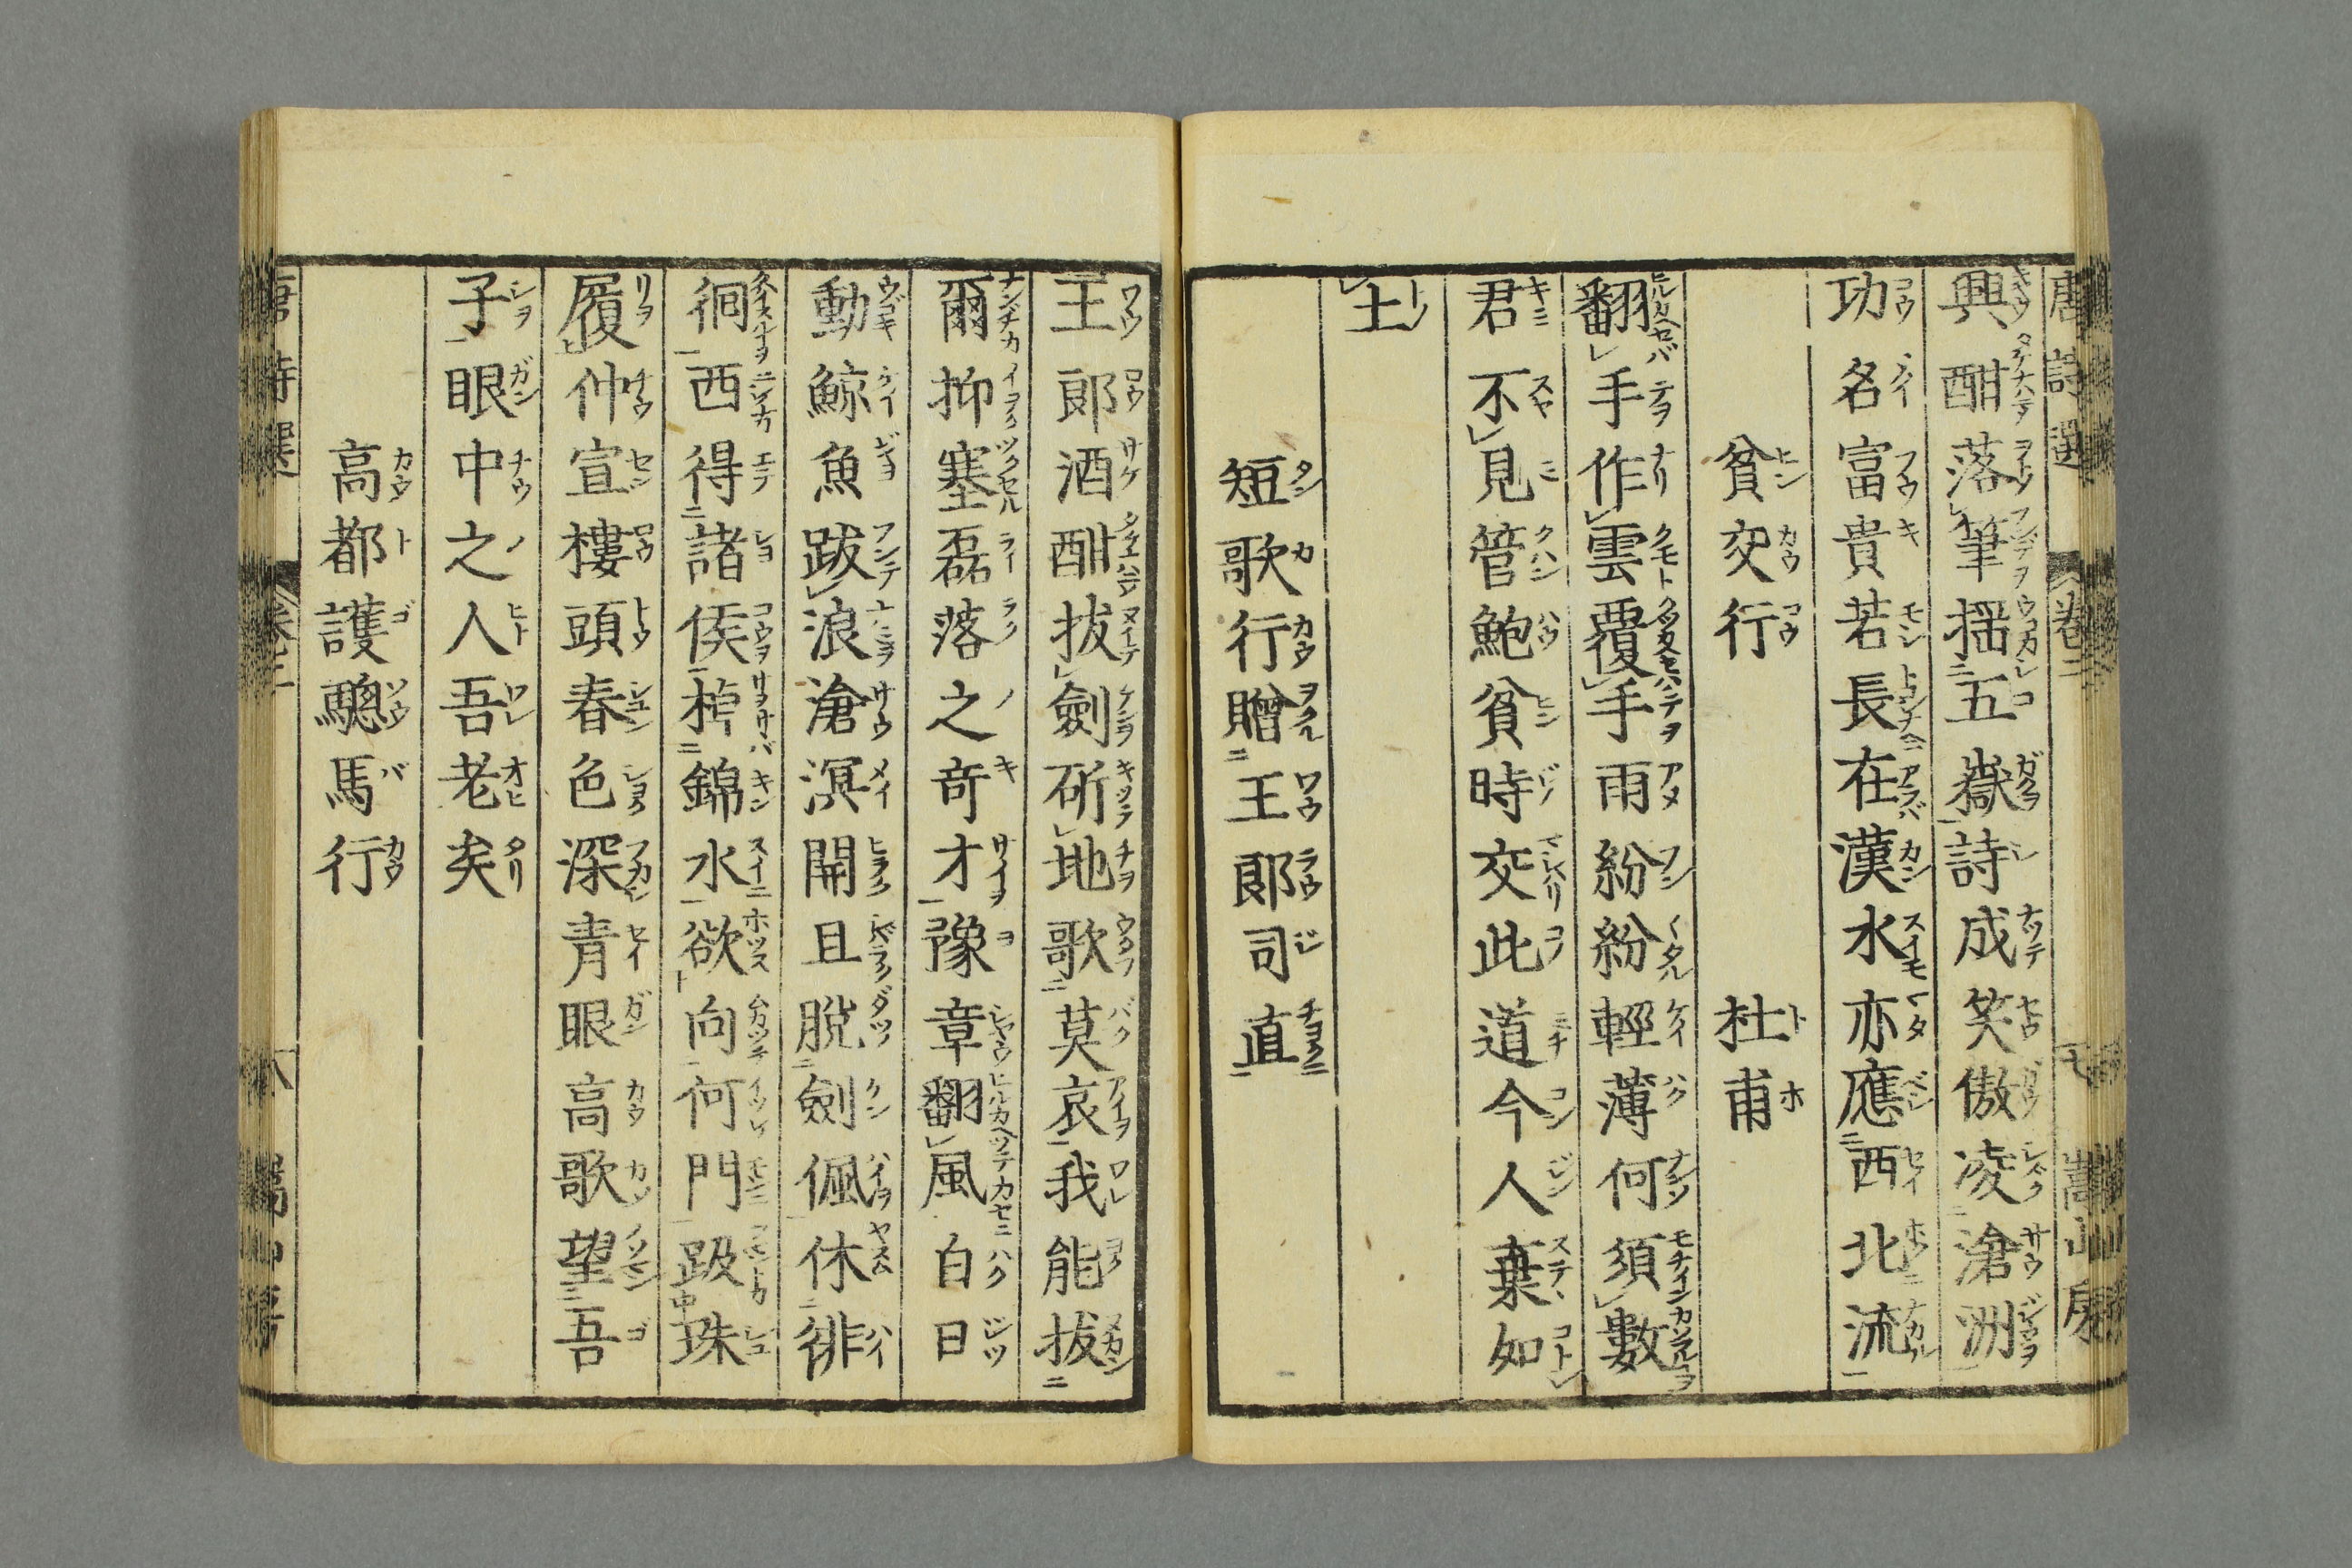 唐詩選 卷二 七 嵩山房
興酣落筆揺五嶽詩成笑傲凌滄洲
功名富貴若長在漢水亦應西北流
貧交行 杜甫
翻手作雲覆手雨紛紛輕薄何須數
君不見管鮑貧時交此道今人棄如
土
短歌行贈王郎司直
王郎酒酣拔劍斫地歌莫哀我能拔
爾抑塞磊落之奇才豫章翻風白日
動鯨魚跋浪滄溟開且脫劍佩休徘
徊西得諸侯棹錦水欲向何門趿珠
履仲宣樓頭春色深青眼高歌望吾
子眼中之人吾老矣
高都護驄馬行
唐詩選 卷二 八